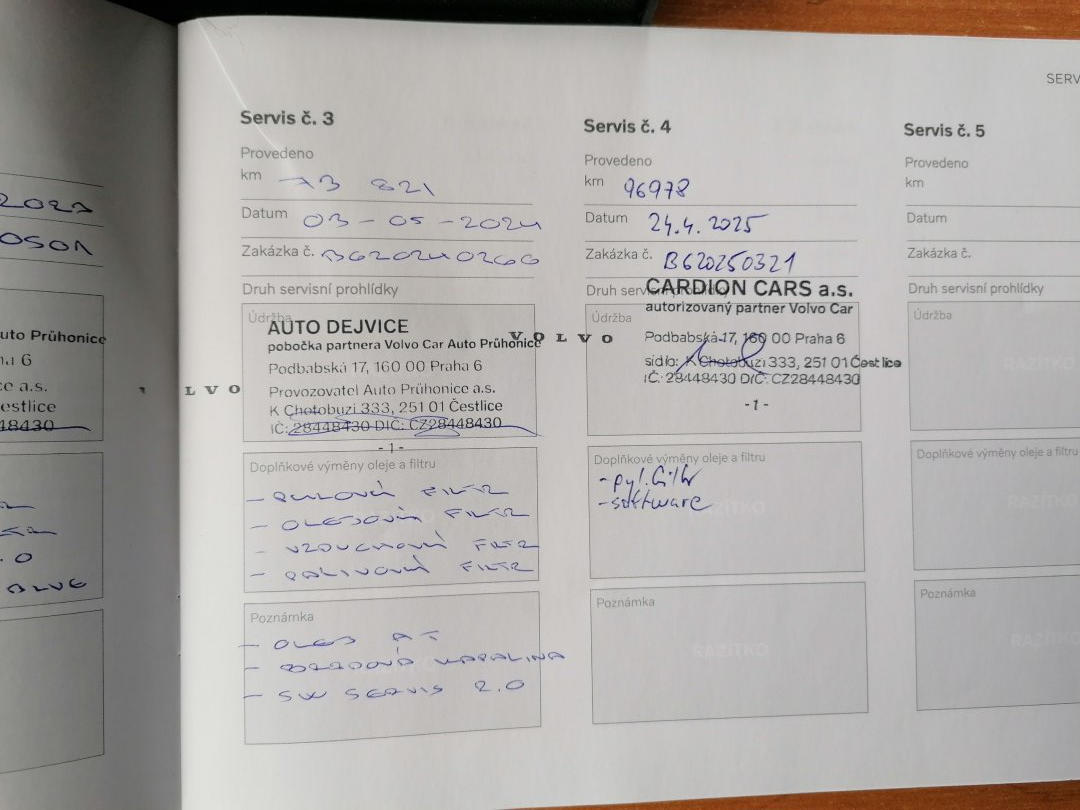 SERV
2023
uto Průhonice
ha 6
ce a.s.
estlice
18430
.0
Servis č. 3
Provedeno
km 73 821
Datum 03-05-2024
Zakázka č. B620240266
Druh servisní prohlídky
Údržba
AUTO DEJVICE
pobočka partnera Volvo Car Auto Průhonice
Podbabská 17, 160 00 Praha 6
Provozovatel Auto Průhonice a.s.
K Chotobuzi 333, 251 01 Čestlice
IČ: 28448430 DIČ: CZ28448430
- 1 -
LVO
Doplňkové výměny oleje a filtru
- PYLOVÝ FILTR
- OLEJOVÝ FILTR
- VZDUCHOVÝ FILTR
- PALIVOVÝ FILTR
Poznámka
- OLEJ AT
- BRZDOVÁ KAPALINA
- SW SERVIS 2.0
Servis č. 4
Provedeno
km 96978
Datum 24.4.2025
Zakázka č. B620250321
Druh servisní prohlídky
Údržba
CARDION CARS a.s.
autorizovaný partner Volvo Car
VOLVO
Podbabská 17, 160 00 Praha 6
sídlo: K Chotobuzi 333, 251 01 Čestlice
IČ: 28448430 DIČ: CZ28448430
- 1 -
Doplňkové výměny oleje a filtru
- pyl. filtr
- software
RAZÍTKO
Poznámka
RAZÍTKO
Servis č. 5
Provedeno
km
Datum
Zakázka č.
Druh servisní prohlídky
Údržba
Doplňkové výměny oleje a
Poznámka